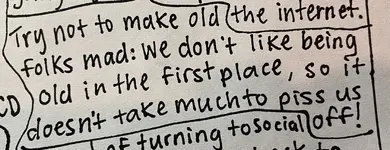 Try not to make old the internet.
folks mad: We don't like being
old in the first place, so it
CD doesn't take much to piss us
turning to social off!